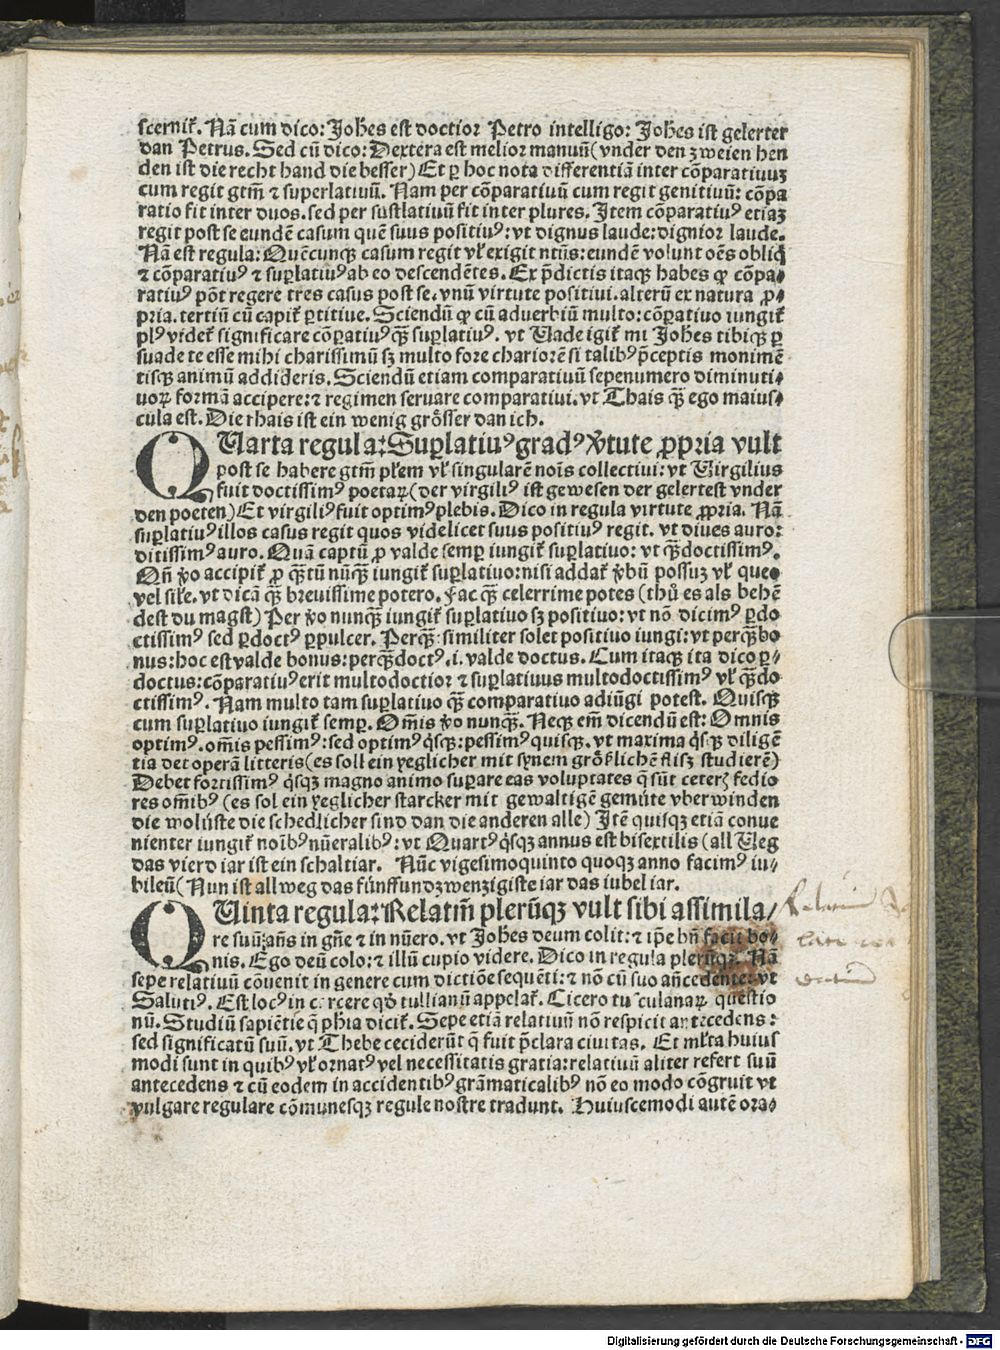 scernit᷑. Nā cum dico: Joħes est doctior Petro intelligo: Joħes ist gelerter
dan Petrus. Sed cū dico: Dextera est melior manuū (vnder den zweien hen
den ist die recht hand die besser) Et ꝑ hoc nota differentiā inter cōparatiuuꝫ
cum regit gtm̄ ⁊ superlatiuū. Nam per cōparatiuū cum regit genitiuū: cōpa
ratio fit inter duos. sed per suꝑlatiuū fit inter plures. Item cōparatiuꝰ etiaꝫ
regit post se eundē casum quē suus positiuꝰ: vt dignus laude: dignior laude.
Nā est regula: Quēcunqꝫ casum regit vl᷑ exigit ntīs: eundē volunt oēs obliq̄
⁊ cōparatiuꝰ ⁊ suꝑlatiuꝰ ab eo descendētes. Ex p̄dictis itaqꝫ habes ꝙ cōpa⸗
ratiuꝰ pōt regere tres casus post se. vnū virtute positiui. alterū ex natura ꝓ⸗
pria. tertiū cū capit᷑ ꝑtitiue. Sciendū ꝙ cū aduerbiū multo: cōꝑatiuo iungit᷑
plꝰ videt᷑ significare cōꝑatiuꝰ qꝫ̄ suꝑlatiuꝰ. vt Uade igit᷑ mi Joħes tibiqꝫ ꝑ
suade te esse mihi charissimū sꝫ multo fore chariorē si talibꝰ p̄ceptis monimē
tisqꝫ animū addideris. Sciendū etiam comparatiuū sepenumero diminuti⸗
uoꝝ formā accipere: ⁊ regimen seruare comparatiui. vt Thais qꝫ̄ ego maius⸗
cula est. Die thais ist ein wenig grösser dan ich.
QUarta regula: Suꝑlatiuꝰ gradꝰ v̓tute ꝓpria vult
post se habere gtm̄ pl᷑em vl᷑ singularē noīs collectiui: vt Uirgilius
fuit doctissimꝰ poetaꝝ (der virgiliꝰ ist gewesen der gelertest vnder
den poeten) Et virgiliꝰ fuit optimꝰ plebis. Dico in regula virtute ꝓpria. Nā
suꝑlatiuꝰ illos casus regit quos videlicet suus positiuꝰ regit. vt diues auro:
ditissimꝰ auro. Quā captū ꝓ valde semꝑ iungit᷑ suꝑlatiuo: vt qꝫ̄ doctissimꝰ.
Qn̄ v̓o accipit᷑ ꝓ qꝫ̄tū nūqꝫ̄ iungit᷑ suꝑlatiuo: nisi addat᷑ v̓bū possuꝫ vl᷑ queo
vel sil᷑e. vt dicā qꝫ̄ breuissime potero. fac qꝫ̄ celerrime potes (thů es als behē
dest du magst) Per v̓o nunqꝫ̄ iungit᷑ suꝑlatiuo sꝫ positiuo: vt nō dicimꝰ ꝑdo
ctissimꝰ sed ꝑdoctꝰ ꝑpulcer. Perqꝫ̄ similiter solet positiuo iungi: vt perqꝫ̄ bo
nus: hoc est valde bonus: perqꝫ̄ doctꝰ .i. valde doctus. Cum itaqꝫ ita dico ꝑ⸗
doctus: cōparatiuꝰ erit multodoctior ⁊ suꝑlatiuus multodoctissimꝰ vl᷑ qꝫ̄do
ctissimꝰ. Nam multo tam suꝑlatiuo qꝫ̄ comparatiuo adiūgi potest. Quisqꝫ
cum suꝑlatiuo iungit᷑ semꝑ. Om̄is v̓o nunqꝫ̄. Neqꝫ em̄ dicendū est: Omnis
optimꝰ. om̄is pessimꝰ: sed optimꝰ q̇sqꝫ: pessimꝰ quisqꝫ. vt maxima q̇sqꝫ diligē
tia det operā litteris (es soll ein yeglicher mit synem gröſzlichē flisz studierē)
Debet fortissimꝰ q̇sqꝫ magno animo suꝑare eas voluptates q̄ sūt ceterꝫ fedio
res om̄ibꝰ (es sol ein yeglicher starcker mit gewaltigē gemüte vberwinden
die wolüste die schedlicher sind dan die anderen alle) Itē quisqꝫ etiā conue
nienter iungit᷑ noībꝰ nūeralibꝰ: vt Quartꝰ q̇sqꝫ annus est bisextilis (all Weg
das vierd iar ist ein schaltiar. Nūc vigesimoquinto quoqꝫ anno facimꝰ iu⸗
bileū (Nun ist allweg das fünffundzwenzigiste iar das iubel iar.
QUinta regula: Relatiū plerūqꝫ vult sibi assimila⸗
re suū an̄s in gn̄e ⁊ in nūero. vt Joħes deum colit: ⁊ ip̄e bn̄ facit bo⸗
nis. Ego deū colo: ⁊ illū cupio videre. Dico in regula plerūqꝫ. Nā
sepe relatiuū cōuenit in genere cum dictiōe sequēti: ⁊ nō cū suo an̄cedente: vt
Salutiꝰ. Est locꝰ in carcere qd̓ tullianū appelat᷑. Cicero tusculanaꝝ questio
nū. Studiū sapiētie q̄ ph̄ia dicit᷑. Sepe etiā relatiuū nō respicit antecedens:
sed significatū suū. vt Thebe ceciderūt q̄ fuit p̄clara ciuitas. Et ml᷑ta huius
modi sunt in quibꝰ vl᷑ ornatꝰ vel necessitatis gratia: relatiuū aliter refert suū
antecedens ⁊ cū eodem in accidentibꝰ grāmaticalibꝰ nō eo modo cōgruit vt
vulgare regulare cōmunesqꝫ regule nostre tradunt. Huiuscemodi autē ora⸗
Digitalisierung gefördert durch die Deutsche Forschungsgemeinschaft - DFG